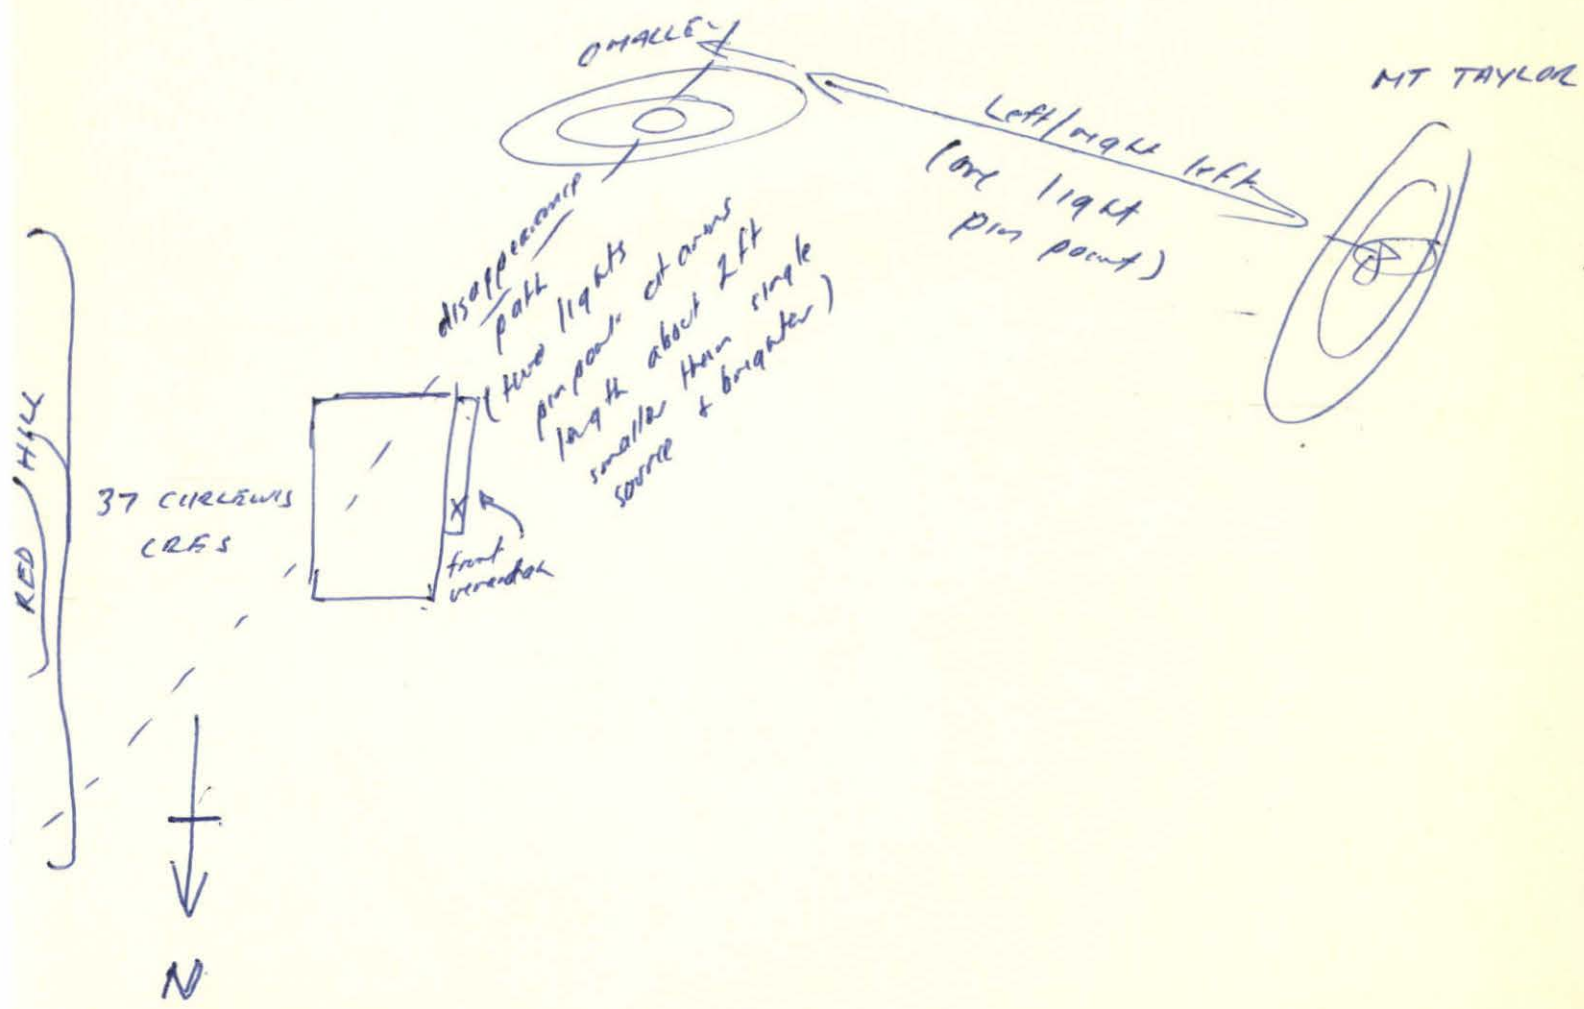 OMALLEY
MT TAYLOR
Left/right left
(one light
pin point)
disappearance
path
(two lights
pin point at arms
length about 2ft
smaller than single
source & brighter)
RED HILL
37 CURLEWIS
CRES
front
verandah
N